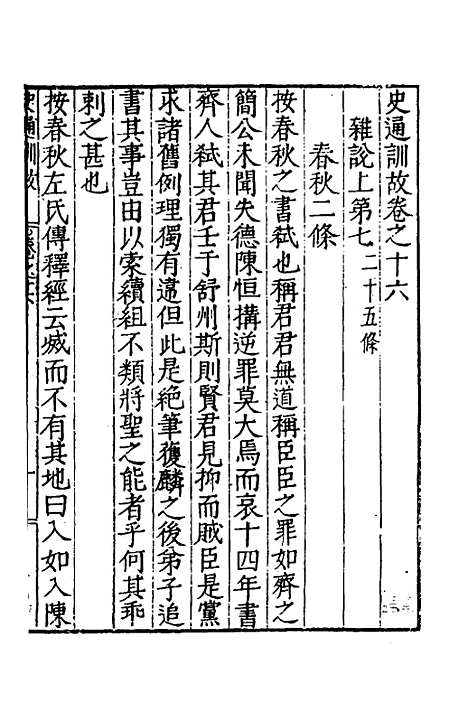 史通訓故卷之十六
雜說上第七二十五條
春秋二條
按春秋之書弑也稱君君無道稱臣臣之罪如齊之
簡公未聞失德陳恒搆逆罪莫大焉而哀十四年書
齊人弑其君壬于舒州斯則賢君見抑而賊臣是黨
求諸舊例理獨有違但此是絶筆獲麟之後弟子追
書其事豈由以索續組不類將聖之能者乎何其乖
剌之甚也
按春秋左氏傳釋經云烕而不有其地曰入如入陳
史通訓故